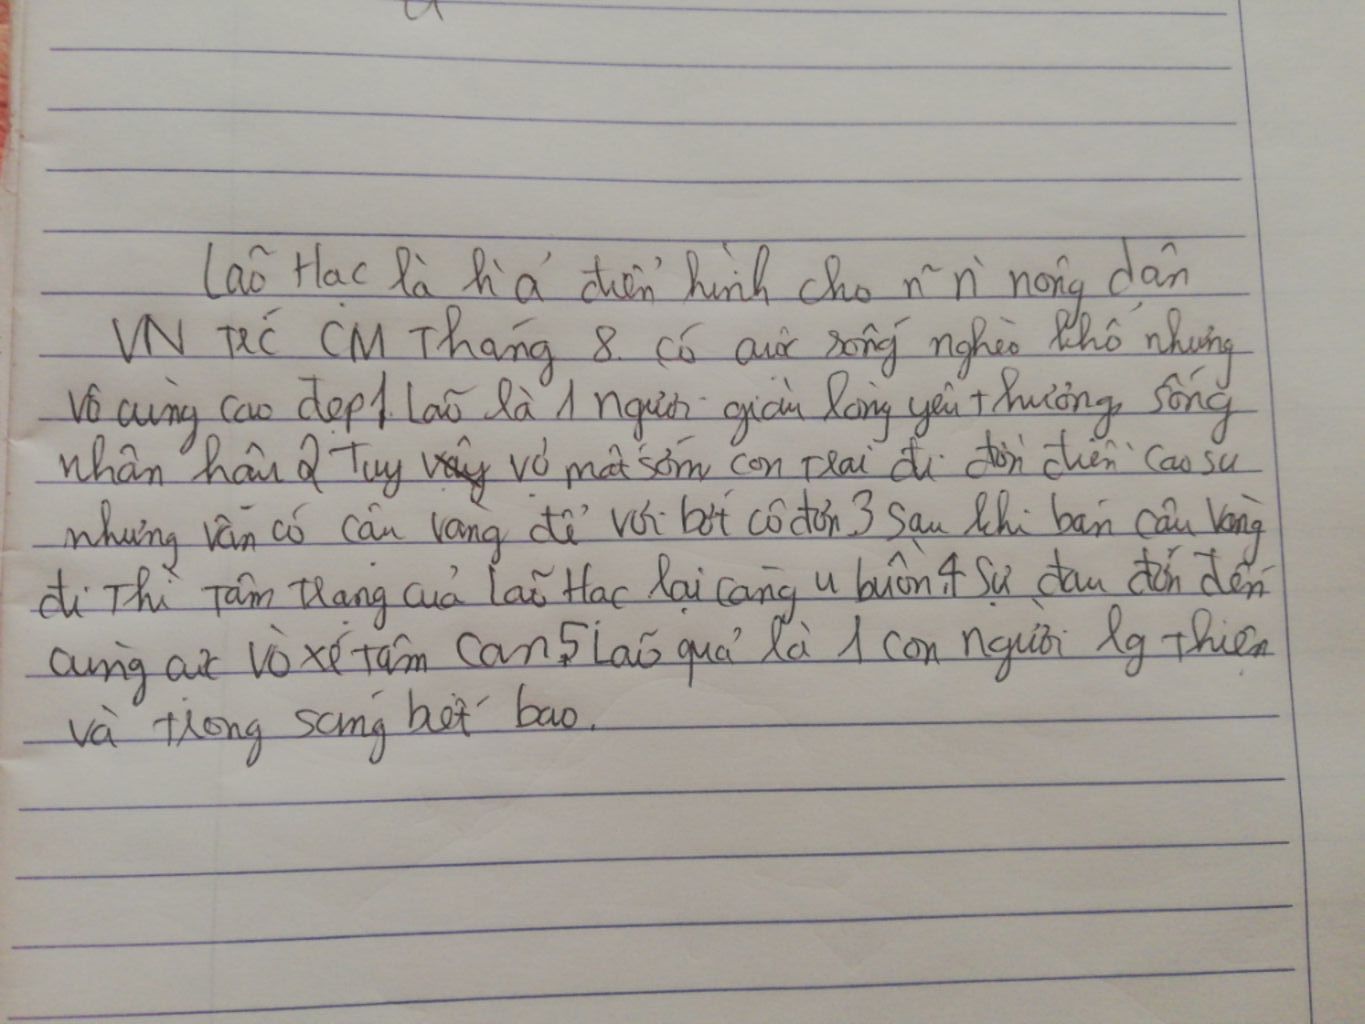 Lão Hạc là h'a' điển hình cho n~ n` nông dân
VN trc CM Tháng 8. có cuộc sống nghèo khổ nhưng
vô cùng cao đẹp1. Lão là 1 người giàu lòng yêu thương, sống
nhân hậu 2 Tuy vậy vợ mất sớm, con trai đi đồn điền cao su
nhưng vẫn có cậu vàng để vơi bớt cô đơn 3 Sau khi bán cậu Vàng
đi Thì Tâm trạng của Lão Hạc lại càng u buồn, 4 Sự đau đớn đến
cùng cực Vò xé tâm can, 5 Lão quả là 1 con người lg thiện
và trong sáng biết bao.